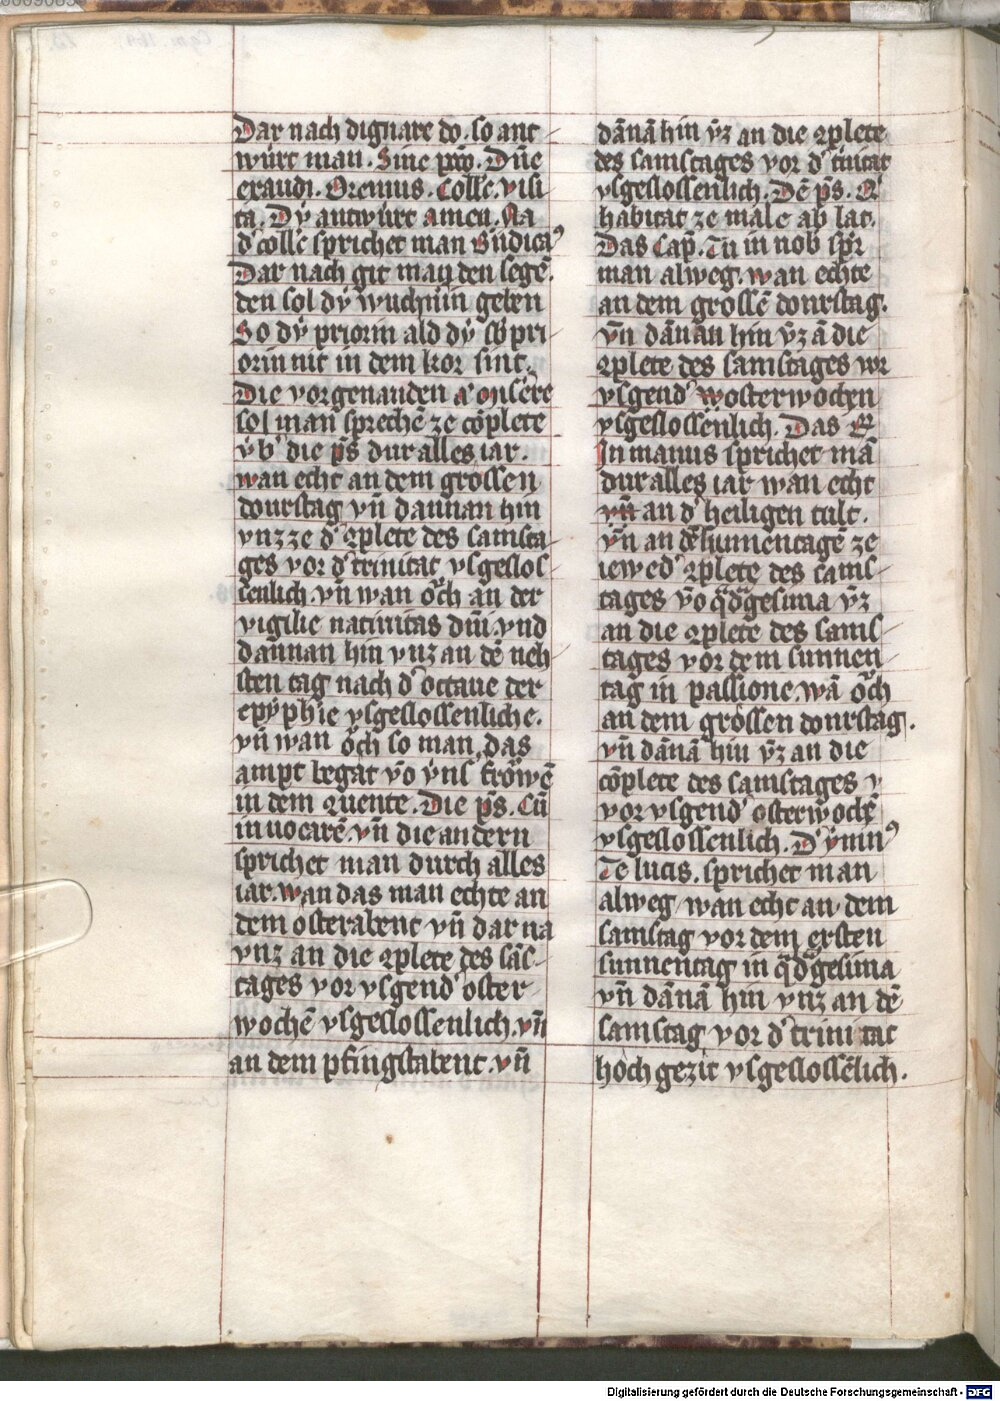 Dar nach dignare do. so ant
würt man. Sine pctō. Dn̄e
exaudi. Oremus. Coll'e. visi
ta. Dÿ antwürt amen. Na
d' coll'e sprichet man Bn̄dicam9
Dar nach git man den segē.
den sol dÿ wuchnn̄ geben
So dÿ priorin ald dÿ sb̄pri
orin nit in dem kor sint.
Die vorgenanden a' onsēre
sol man sprechē ze cōplete
v̈b' die ps̄ dur alles iar.
wan echt an dem grossen
donrstag vn̄ dannan hin
vnz ze d' ꝯplete des samsta
ges vor d' trinitat vsgeslos
senlich. vn̄ wan oͮch an der
vigilie natiuitas dn̄i. vnd
dannan hin vnz an dē neh
sten tag nach d' octaue der
epÿphie vsgeslossenliche.
vn̄ wan oͮch so man das
ampt begat vō v̈ns' froͮwē
in dem auente. Die ps̄. Cū
inuocarē. vn̄ die andern
sprichet man durch alles
iar. wan das man echte an
dem osterabent vn̄ dar na
vnz an die ꝯplete des sās
tages vor vsgend' oster
wochē vsgeslossenlich. vn̄
an dem pfingstabent. vn̄
dānā hin v̄z an die ꝯplete
des samstages vor d' t'nitat
vsgeslossenlich. Dē ps̄. Q'
habitat ze male ab lat.
Das Cap̄. Tu in nob sp'r
man alweg. wan echte
an dem grossē donrstag.
vn̄ dānan hin v̄z ā die
ꝯplete des samstages vor
vsgend' wosterwochen
vsgeslossēnlich. Das R̄
In manus sprichet mā
dur alles iar wan echt
vn̄ an d' heiligen tult.
vn̄ an dē sunnentagē ze
iewed' ꝯplete des sams
tages vō qͣdͣgesima v̄z
an die ꝯplete des sams
tages vor dem sunnen
tag in passione. wā oͮch
an dem grossen donrstag.
vn̄ dānā hin v̄z an die
cōplete des samstages v
vor vsgend' osterwochē
vsgeslossenlich. D' ÿmn9
Te lucis. sprichet man
alweg wan echt an dem
samstag vor dem ersten
sunnentag in qͣdͣgesima
vn̄ dānā hin vnz an dē
samstag vor d' trinitat
hochgezit vsgeslossēlich.
Digitalisierung gefördert durch die Deutsche Forschungsgemeinschaft - DFG